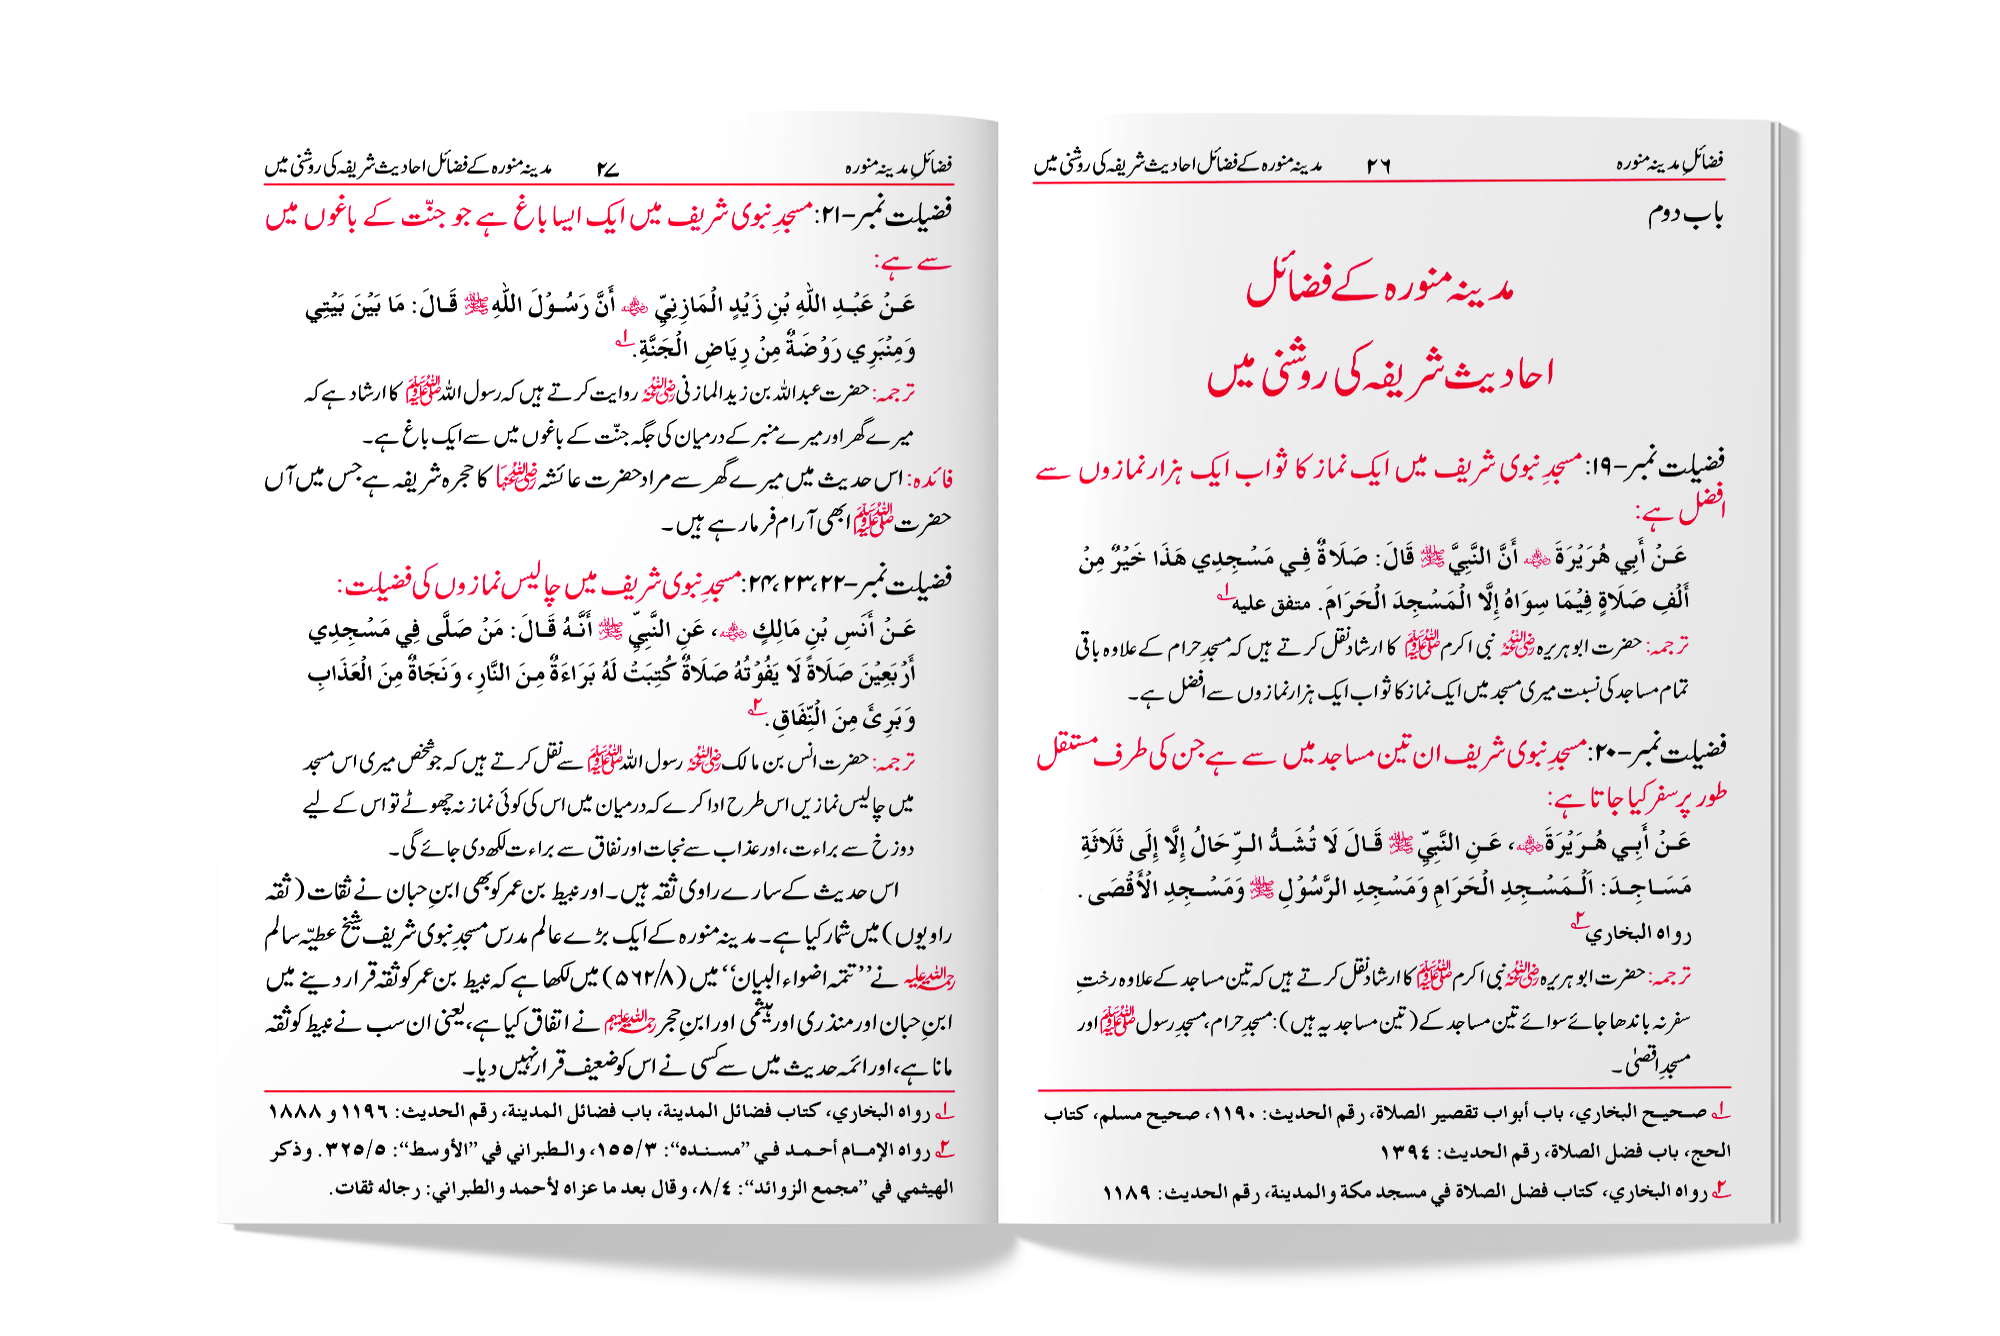 فضائلِ مدینہ منورہ ۲۶ مدینہ منورہ کے فضائل احادیث شریفہ کی روشنی میں
باب دوم
مدینہ منورہ کے فضائل
احادیث شریفہ کی روشنی میں
فضیلت نمبر–۱۹: مسجدِ نبوی شریف میں ایک نماز کا ثواب ایک ہزار نمازوں سے
افضل ہے:
عَنْ أَبِي هُرَيْرَةَ رضي الله عنه أَنَّ النَّبِيَّ ﷺ قَالَ: صَلَاةٌ فِي مَسْجِدِي هَذَا خَيْرٌ مِنْ
أَلْفِ صَلَاةٍ فِيْمَا سِوَاهُ إِلَّا الْمَسْجِدَ الْحَرَامَ. متفق عليه ۱؎
ترجمہ: حضرت ابوہریرہ رضی اللہ عنہ نبی اکرم ﷺ کا ارشاد نقل کرتے ہیں کہ مسجدِ حرام کے علاوہ باقی
تمام مساجد کی نسبت میری مسجد میں ایک نماز کا ثواب ایک ہزار نمازوں سے افضل ہے۔
فضیلت نمبر–۲۰: مسجدِ نبوی شریف ان تین مساجد میں سے ہے جن کی طرف مستقل
طور پر سفر کیا جاتا ہے:
عَنْ أَبِي هُرَيْرَةَ رضي الله عنه، عَنِ النَّبِيِّ ﷺ قَالَ لَا تُشَدُّ الرِّحَالُ إِلَّا إِلَى ثَلَاثَةِ
مَسَاجِدَ: اَلْمَسْجِدِ الْحَرَامِ وَمَسْجِدِ الرَّسُوْلِ ﷺ وَمَسْجِدِ الْأَقْصَى.
رواه البخاري ۲؎
ترجمہ: حضرت ابوہریرہ رضی اللہ عنہ نبی اکرم ﷺ کا ارشاد نقل کرتے ہیں کہ تین مساجد کے علاوہ رختِ
سفر نہ باندھا جائے سوائے تین مساجد کے (تین مساجد یہ ہیں): مسجدِ حرام، مسجدِ رسول ﷺ اور
مسجدِ اقصیٰ۔
۱؎ صحيح البخاري، باب أبواب تقصير الصلاة، رقم الحديث: ١١٩٠، صحيح مسلم، كتاب
الحج، باب فضل الصلاة، رقم الحديث: ١٣٩٤
۲؎ رواه البخاري، كتاب فضل الصلاة في مسجد مكة والمدينة، رقم الحديث: ١١٨٩
فضائلِ مدینہ منورہ ۲۷ مدینہ منورہ کے فضائل احادیث شریفہ کی روشنی میں
فضیلت نمبر–۲۱: مسجدِ نبوی شریف میں ایک ایسا باغ ہے جو جنّت کے باغوں میں
سے ہے:
عَنْ عَبْدِ اللهِ بْنِ زَيْدٍ الْمَازِنِيِّ رضي الله عنه أَنَّ رَسُوْلَ اللهِ ﷺ قَالَ: مَا بَيْنَ بَيْتِي
وَمِنْبَرِي رَوْضَةٌ مِنْ رِيَاضِ الْجَنَّةِ. ۱؎
ترجمہ: حضرت عبد اللہ بن زید المازنی رضی اللہ عنہ روایت کرتے ہیں کہ رسول اللہ ﷺ کا ارشاد ہے کہ
میرے گھر اور میرے منبر کے درمیان کی جگہ جنّت کے باغوں میں سے ایک باغ ہے۔
فائدہ: اس حدیث میں میرے گھر سے مراد حضرت عائشہ رضی اللہ عنہا کا حجرہ شریفہ ہے جس میں آں
حضرت ﷺ ابھی آرام فرما رہے ہیں۔
فضیلت نمبر–۲۲، ۲۳، ۲۴: مسجدِ نبوی شریف میں چالیس نمازوں کی فضیلت:
عَنْ أَنَسِ بْنِ مَالِكٍ رضي الله عنه، عَنِ النَّبِيِّ ﷺ أَنَّهُ قَالَ: مَنْ صَلَّى فِي مَسْجِدِي
أَرْبَعِيْنَ صَلَاةً لَا يَفُوْتُهُ صَلَاةٌ كُتِبَتْ لَهُ بَرَاءَةٌ مِنَ النَّارِ، وَنَجَاةٌ مِنَ الْعَذَابِ
وَبَرِئَ مِنَ النِّفَاقِ. ۲؎
ترجمہ: حضرت انس بن مالک رضی اللہ عنہ رسول اللہ ﷺ سے نقل کرتے ہیں کہ جو شخص میری اس مسجد
میں چالیس نمازیں اس طرح ادا کرے کہ درمیان میں اس کی کوئی نماز نہ چھوٹے تو اس کے لیے
دوزخ سے براءت، اور عذاب سے نجات اور نفاق سے براءت لکھ دی جائے گی۔
اس حدیث کے سارے راوی ثقہ ہیں۔ اور نبیط بن عمر کو بھی ابنِ حبان نے ثقات (ثقہ
راویوں) میں شمار کیا ہے۔ مدینہ منورہ کے ایک بڑے عالم مدرس مسجدِ نبوی شریف شیخ عطیّہ سالم
رحمہ اللہ علیہ نے ”تتمہ اضواء البیان“ میں (۵۶۲/۸) میں لکھا ہے کہ نبیط بن عمر کو ثقہ قرار دینے میں
ابنِ حبان اور منذری اور ہیثمی اور ابنِ حجر رحمۃ اللہ علیہم نے اتفاق کیا ہے، یعنی ان سب نے نبیط کو ثقہ
مانا ہے، اور ائمہ حدیث میں سے کسی نے اس کو ضعیف قرار نہیں دیا۔
۱؎ رواه البخاري، كتاب فضائل المدينة، باب فضائل المدينة، رقم الحديث: ١١٩٦ و ١٨٨٨
۲؎ رواه الإمام أحمد في ”مسنده“: ٣/‏١٥٥، والطبراني في ”الأوسط“: ٥/‏٣٢٥. وذكر
الهيثمي في ”مجمع الزوائد“: ٤/‏٨، وقال بعد ما عزاه لأحمد والطبراني: رجاله ثقات.